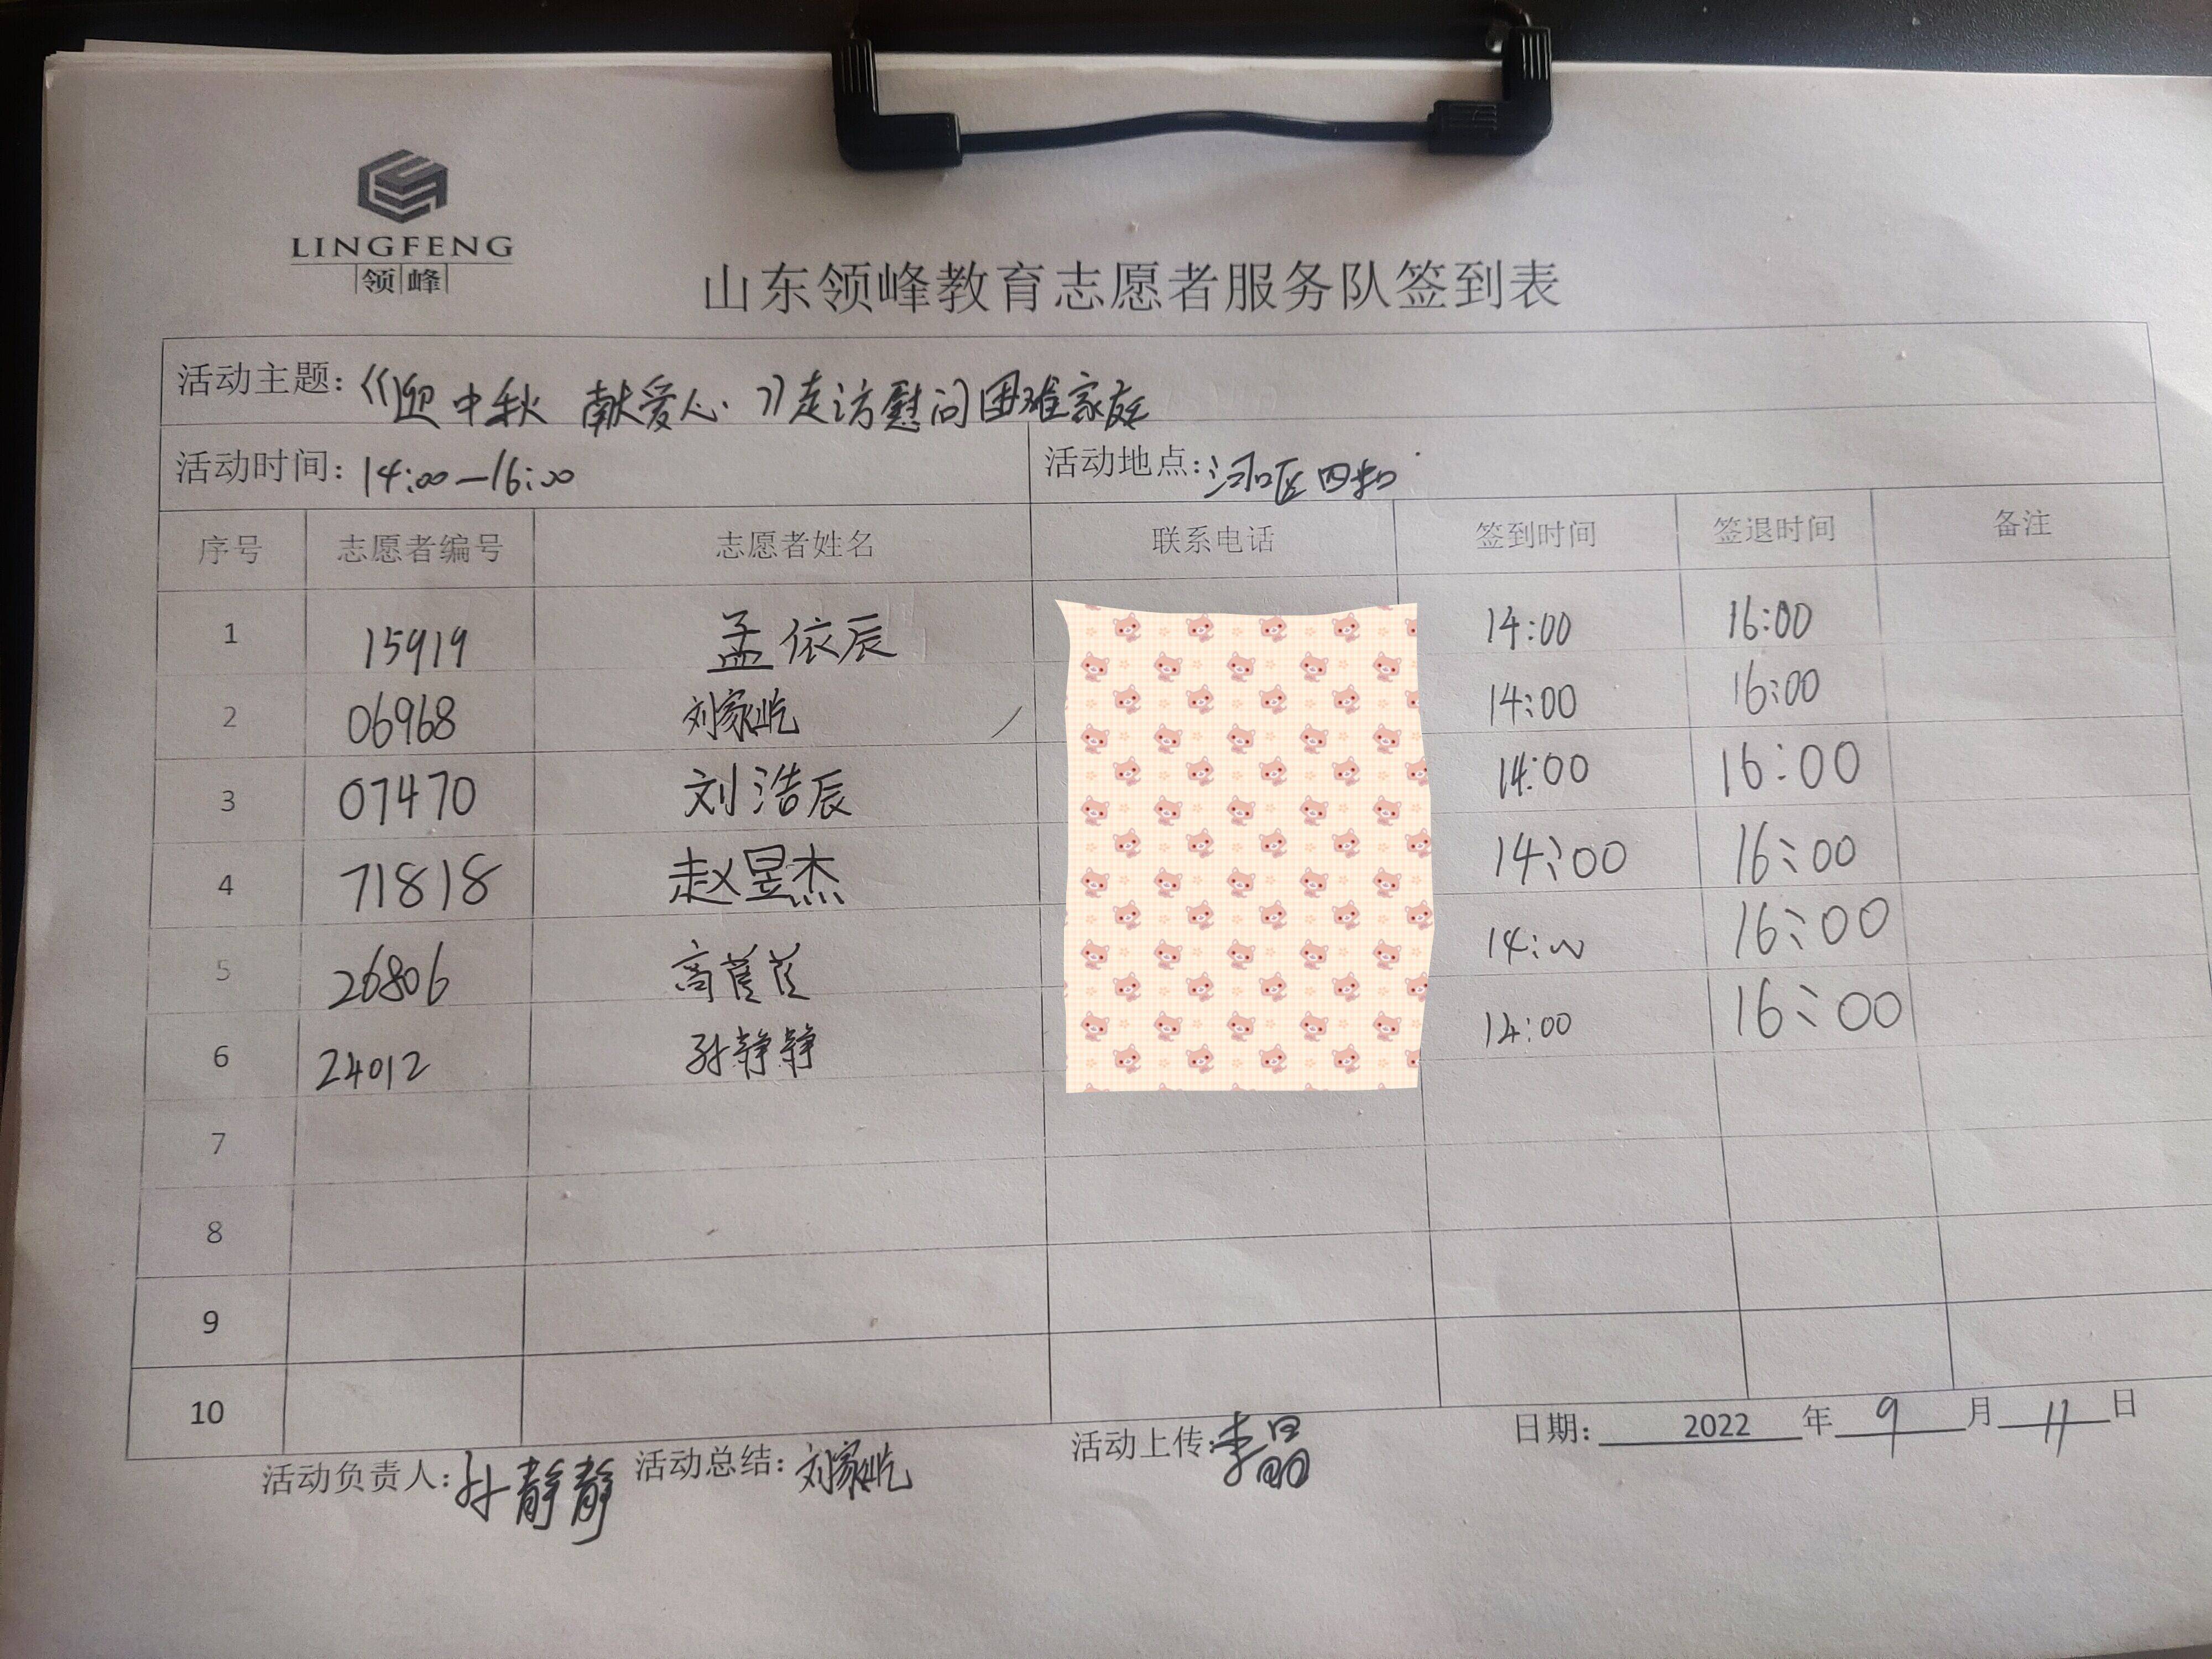 LINGFENG
领峰
山东领峰教育志愿者服务队签到表
活动主题:《迎中秋 献爱心》走访慰问困难家庭
活动时间:14:00—16:00 活动地点:
序号 志愿者编号 志愿者姓名 联系电话 签到时间 签退时间 备注
1 15919 孟依辰 14:00 16:00
2 06968 刘家屹 14:00 16:00
3 07470 刘浩辰 14:00 16:00
4 71818 赵昱杰 14:00 16:00
5 26806 高 14:00 16:00
6 24012 孙静静 14:00 16:00
7
8
9
10
活动负责人:孙静静 活动总结:刘家屹 活动上传:李晶 日期: 2022 年 9 月 11 日